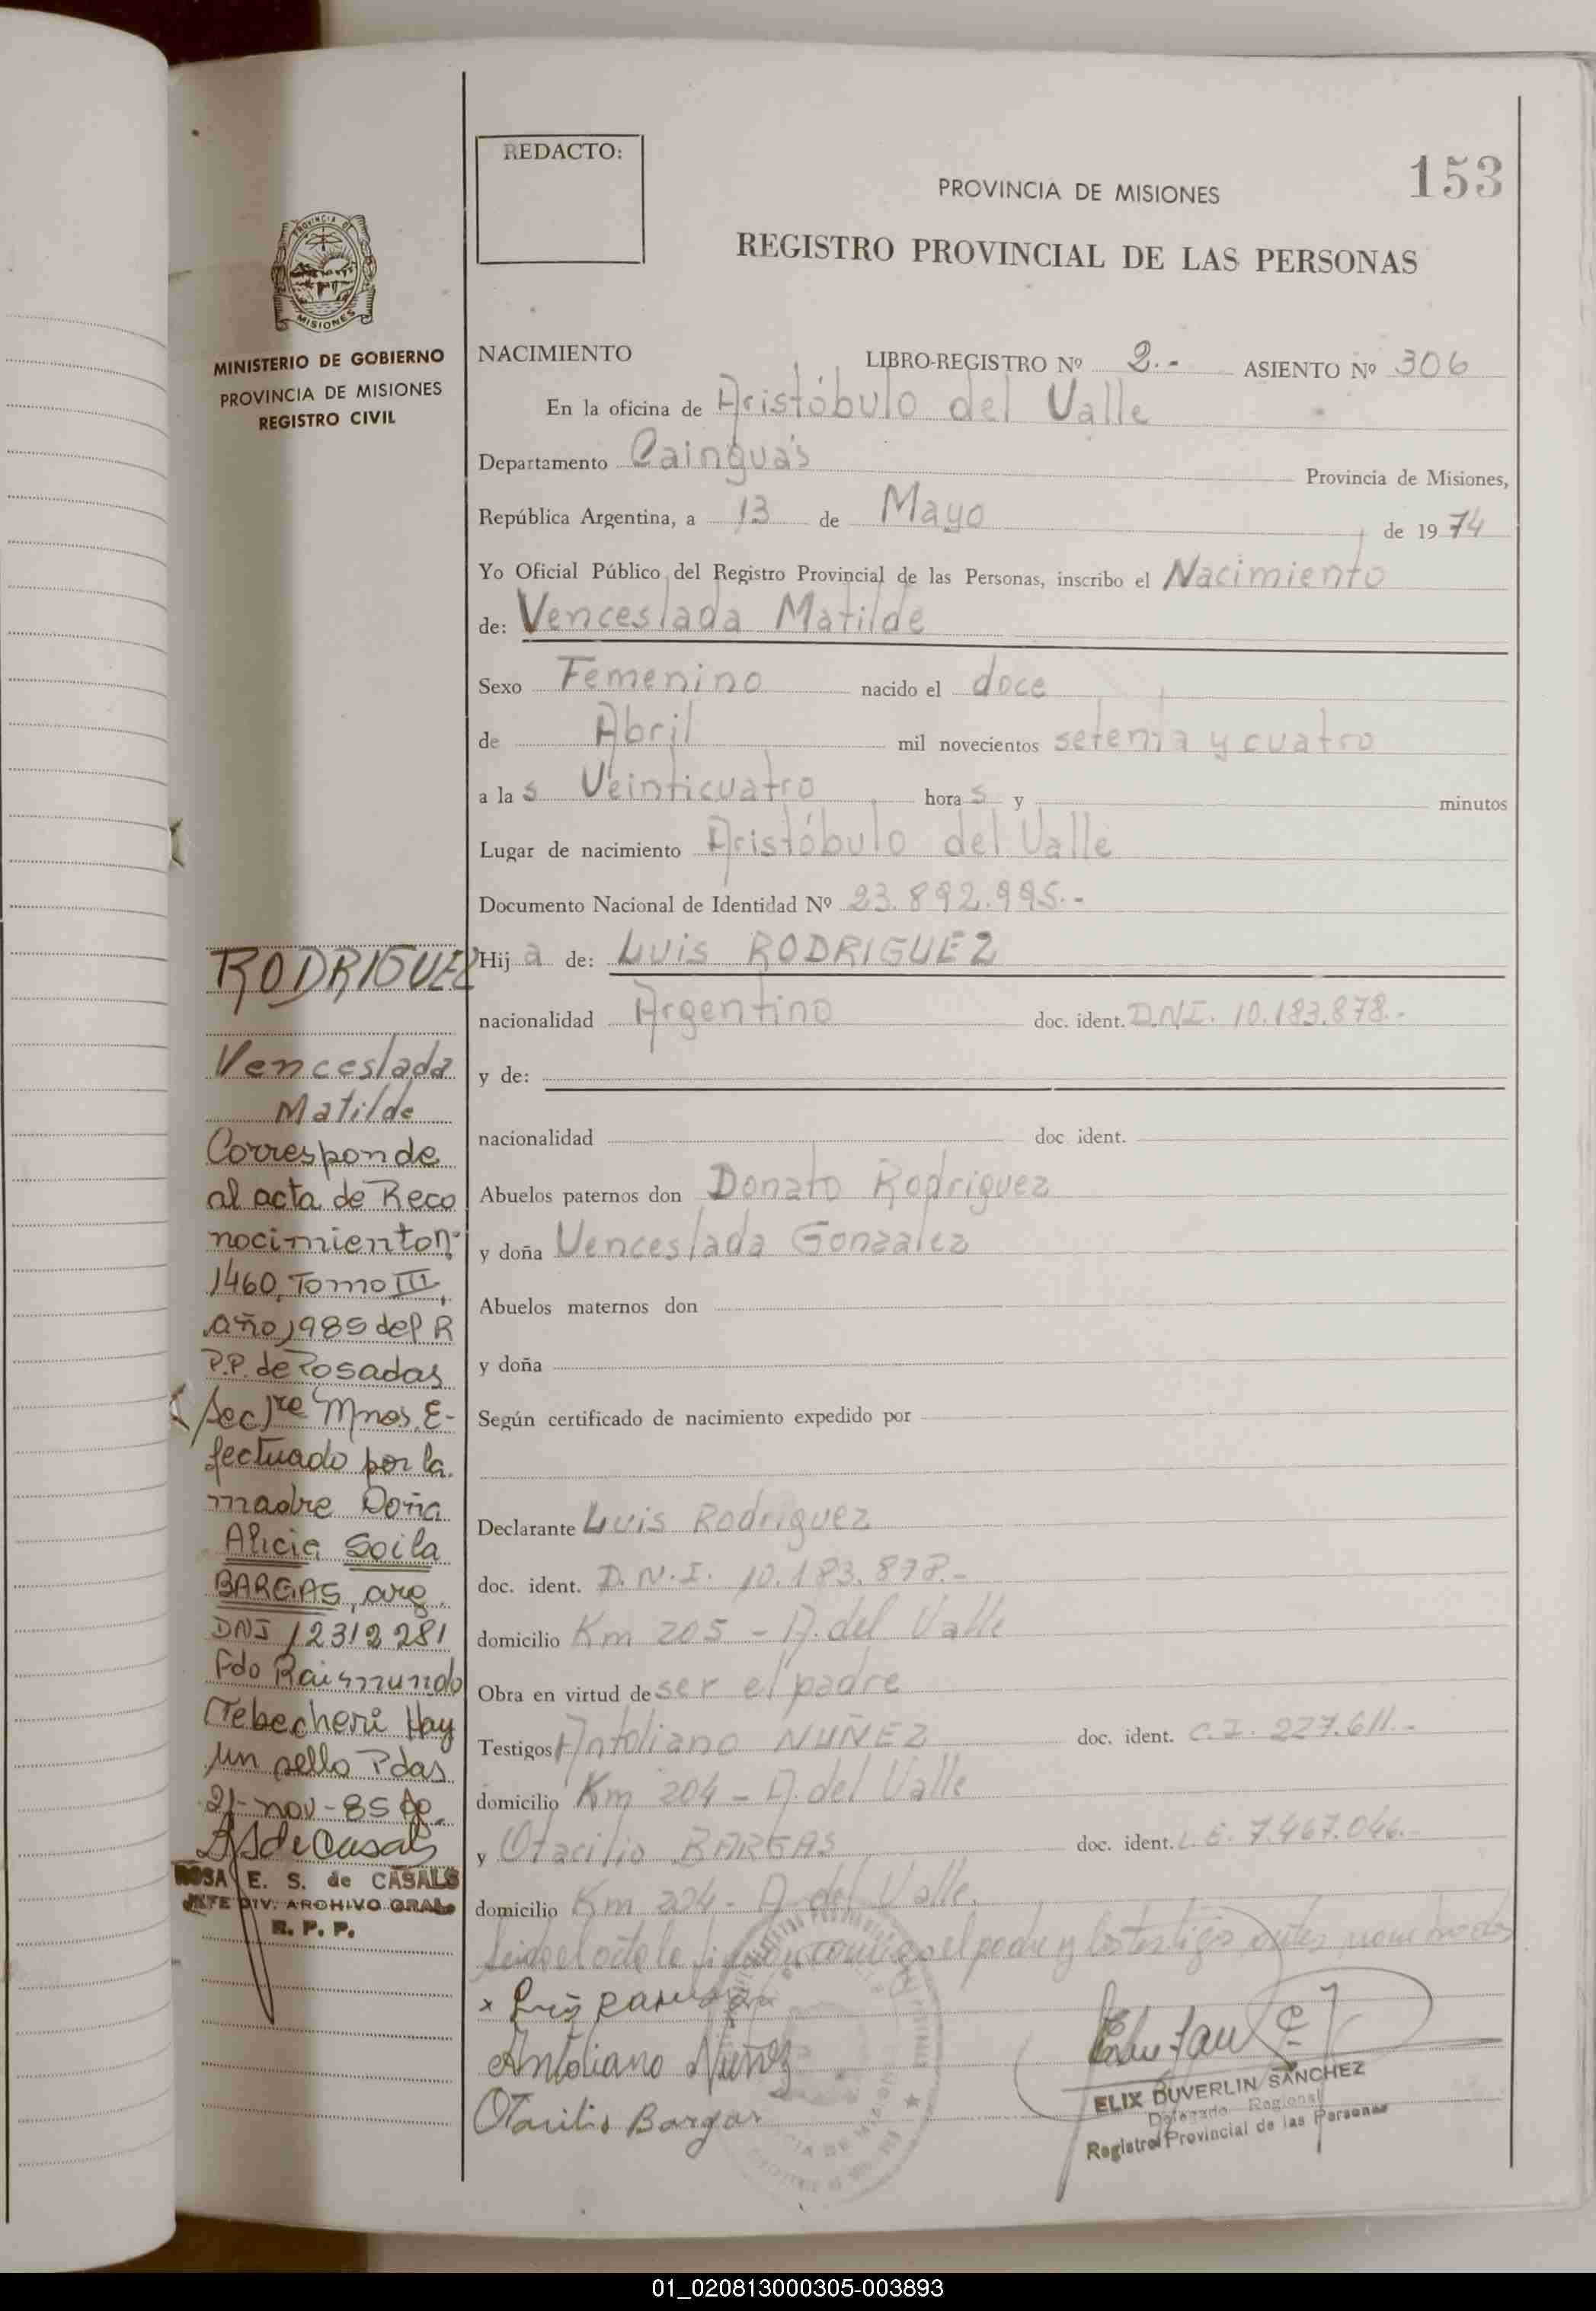 REDACTO:
153
PROVINCIA DE MISIONES
REGISTRO PROVINCIAL DE LAS PERSONAS
PROVINCIA DE
MISIONES
MINISTERIO DE GOBIERNO
PROVINCIA DE MISIONES
REGISTRO CIVIL
RODRIGUEZ
Venceslada
Matilde
Corresponde
al acta de Reco
nocimiento nº
1460, Tomo III,
año 1985 del R
P.P. de Posadas
Secc 1re Mnes. E-
fectuado por la
madre Doña
Alicia Soila
BARGAS, arg.
DNI 12312281
Fdo Raimundo
Tebecheri Hay
un sello Pdas
21-nov-85
ROSA E. S. de CASALS
JEFE DIV. ARCHIVO GRAL
R. P. P.
NACIMIENTO LIBRO-REGISTRO Nº 2.- ASIENTO Nº 306
En la oficina de Aristóbulo del Valle
Departamento Cainguás Provincia de Misiones,
República Argentina, a 13 de Mayo de 1974
Yo Oficial Público del Registro Provincial de las Personas, inscribo el Nacimiento
de: Venceslada Matilde
Sexo Femenino nacido el doce
de Abril mil novecientos setenta y cuatro
a la s Veinticuatro hora s y minutos
Lugar de nacimiento Aristóbulo del Valle
Documento Nacional de Identidad Nº 23.892.995.-
Hij a de: Luis RODRIGUEZ
nacionalidad Argentino doc. ident. D.N.I. 10.183.878.-
y de:
nacionalidad doc ident.
Abuelos paternos don Donato Rodriguez
y doña Venceslada Gonzalez
Abuelos maternos don
y doña
Según certificado de nacimiento expedido por
Declarante Luis Rodriguez
doc. ident. D.N.I. 10.183.878.-
domicilio Km 205 - A. del Valle
Obra en virtud de ser el padre
Testigos Antoliano NUÑEZ doc. ident. C.I. 227.611.-
domicilio Km 204 - A. del Valle
y Otacilio BARGAS doc. ident. L.E. 7.467.046.-
domicilio Km 204 - A. del Valle.
Leida el acta la firman conmigo el padre y los testigos antes nombrados
x Luis
Antoliano Nuñez
Otacilio Bargas
ELIX DUVERLIN SANCHEZ
Delegado Regional
Registro Provincial de las Personas
01_020813000305-003893